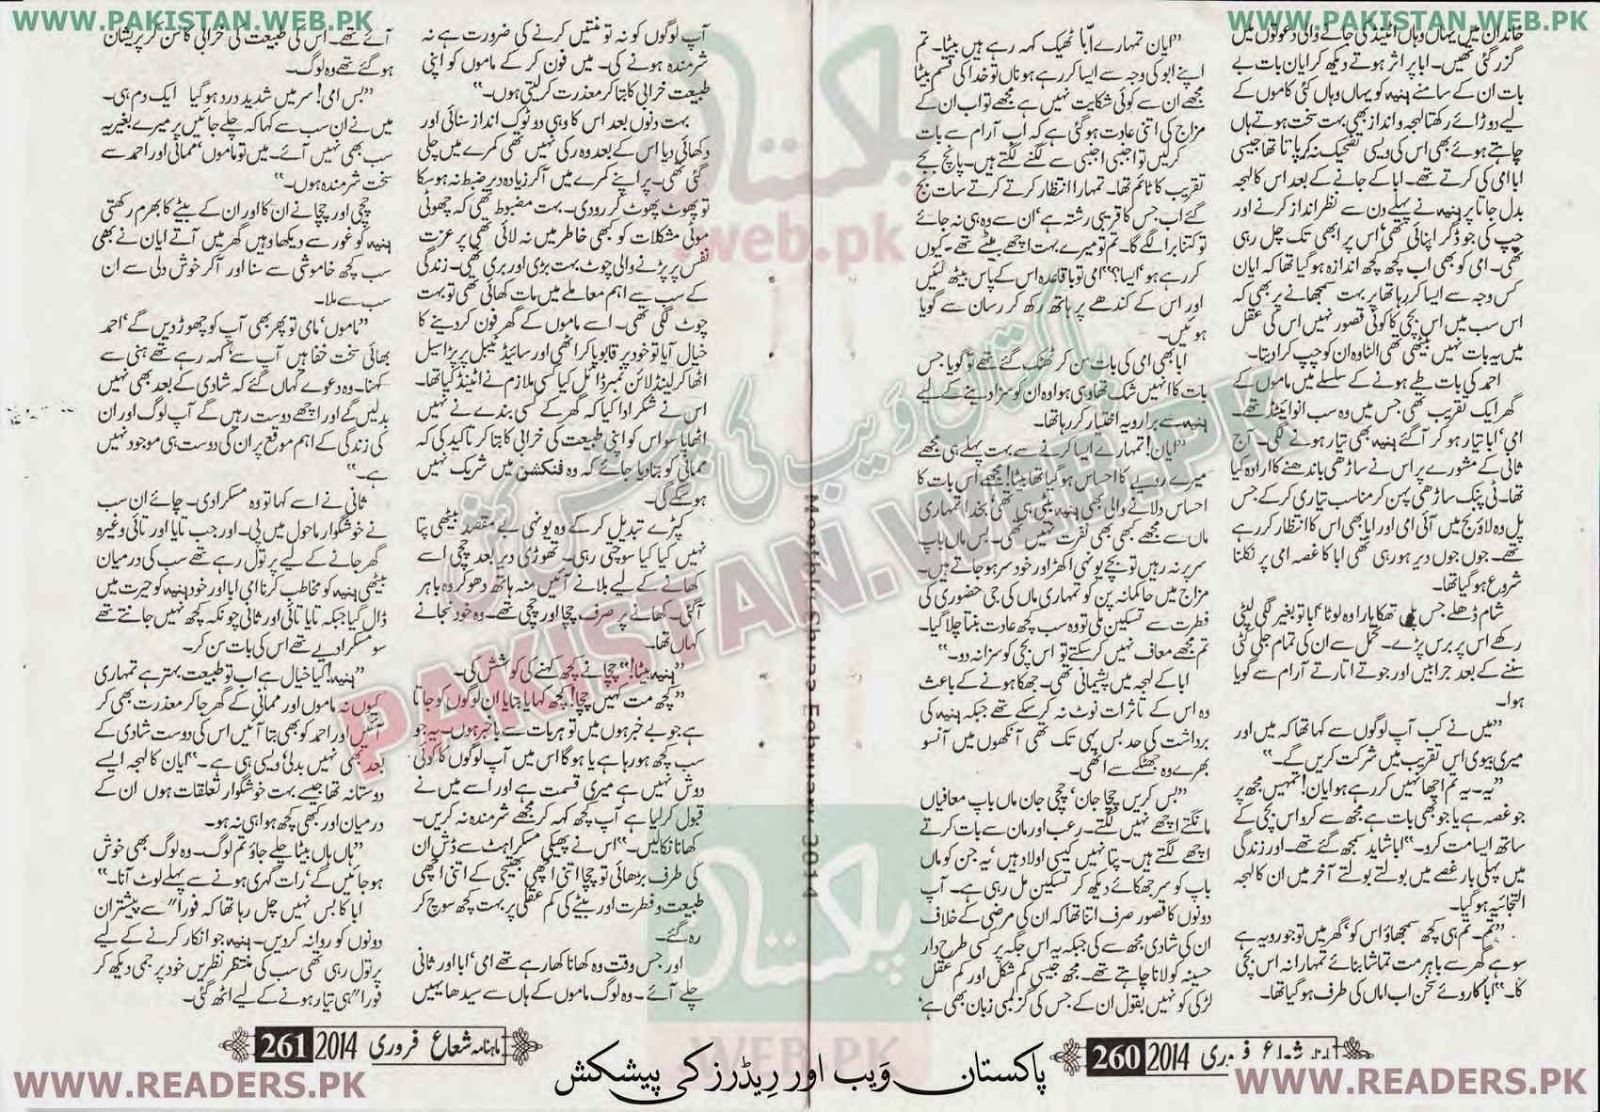 WWW.PAKISTAN.WEB.PK
WWW.PAKISTAN.WEB.PK
خاندان میں یہاں وہاں اٹینڈ کی جانے والی دعوتوں میں
گزر گئی تھیں۔ ابا پر اثر ہوتے دیکھ کر ایان بات بے
بات ان کے سامنے ہنیہ کو یہاں وہاں کئی کاموں کے
لیے دوڑائے رکھتا لہجہ و انداز بھی بہت سخت ہوتے ہاں
چاہتے ہوئے بھی اس کی ویسی تضحیک نہ کر پاتا تھا جیسی
ابا امی کی کرتے تھے۔ ابا کے جانے کے بعد اس کا لہجہ
بدل جاتا پر ہنیہ نے پہلے دن سے نظر انداز کرنے اور
چپ کی جو ڈگر اپنائی تھی، اس پر ابھی تک چل رہی
تھی۔ امی کو بھی اب کچھ کچھ اندازہ ہو گیا تھا کہ ایان
کس وجہ سے ایسا کر رہا تھا پر بہت سمجھانے پر بھی کہ
اس سب میں اس بچی کا کوئی قصور نہیں اس کی عقل
میں یہ بات نہیں بیٹھی تھی الٹا وہ ان کو چپ کرا دیتا۔
احمد کی بات طے ہونے کے سلسلے میں ماموں کے
گھر ایک تقریب تھی جس میں وہ سب انوائیٹڈ تھے۔
امی، ابا تیار ہو کر آ گئے ہنیہ بھی تیار ہونے لگی۔ آج
ثانی کے مشورے پر اس نے ساڑھی باندھنے کا ارادہ کیا
تھا۔ ٹی پنک ساڑھی پہن کر مناسب تیاری کر کے جس
پل وہ لاؤنج میں آئی امی اور ابا بھی اس کا انتظار کر رہے
تھے۔ جوں جوں دیر ہو رہی تھی ابا کا غصہ امی پر نکلنا
شروع ہو گیا تھا۔
شام ڈھلے جس پل تھکا ہارا وہ لوٹا، ابا تو بغیر لگی لپٹی
رکھے اس پر برس پڑے۔ تحمل سے ان کی تمام جلی کٹی
سننے کے بعد جرابیں اور جوتے اتارتے آرام سے گویا
ہوا۔
”میں نے کب آپ لوگوں سے کہا تھا کہ میں اور
میری بیوی اس تقریب میں شرکت کریں گے۔“
”یہ۔ یہ تم اچھا نہیں کر رہے ہو ایان! تمہیں مجھ پر
جو غصہ ہے یا جو بھی بات ہے مجھ سے کرو اس بچی کے
ساتھ ایسا مت کرو۔“ ابا شاید سمجھ گئے تھے۔ اور زندگی
میں پہلی بار غصے میں بولتے بولتے آخر میں ان کا لہجہ
التجائیہ ہو گیا۔
”تم۔ تم ہی کچھ سمجھاؤ اس کو، گھر میں تو جو رویہ ہے
سو ہے گھر سے باہر مت تماشا بنائے تمہارا نہ اس بچی
کا۔“ ابا کا روئے سخن اب اماں کی طرف ہو گیا تھا۔
”ایان تمہارے ابا ٹھیک کہہ رہے ہیں بیٹا۔ تم
اپنے ابو کی وجہ سے ایسا کر رہے ہو ناں تو خدا کی قسم بیٹا
مجھے ان سے کوئی شکایت نہیں ہے مجھے تو اب ان کے
مزاج کی اتنی عادت ہو گئی ہے کہ اب آرام سے بات
کریں تو اجنبی اجنبی سے لگنے لگتے ہیں۔ پانچ بجے
تقریب کا ٹائم تھا۔ تمہارا انتظار کرتے کرتے سات بج
گئے اب جس کا قریبی رشتہ ہے، ان سے وہ ہی نہ جائے
تو کتنا برا لگے گا۔ تم تو میرے بہت اچھے بیٹے تھے۔ کیوں
کر رہے ہو ایسا؟“ امی تو باقاعدہ اس کے پاس بیٹھ گئیں
اور اس کے کندھے پر ہاتھ رکھ کر رسان سے گویا
ہوئیں۔
ابا بھی امی کی بات سن کر ٹھٹک گئے تھے تو گویا جس
بات کا انہیں شک تھا وہی ہوا وہ ان کو سزا دینے کے لیے
ہنیہ سے برا رویہ اختیار کر رہا تھا۔
”ایان! تمہارے ایسا کرنے سے بہت پہلے ہی مجھے
میرے رویے کا احساس ہو گیا تھا بیٹا! مجھے اس بات کا
احساس دلانے والی بھی ہنیہ بیٹی ہی تھی، بخدا تمہاری
ماں سے مجھے کبھی بھی نفرت نہیں تھی۔ بس ماں باپ
سر پر نہ رہیں تو بچے یونہی اکھڑ اور خود سر ہو جاتے ہیں۔
مزاج میں حاکمانہ پن کو تمہاری ماں کی جی حضوری کی
فطرت سے تسکین ملی تو وہ سب کچھ عادت بنتا چلا گیا۔
تم مجھے معاف نہیں کر سکتے تو اس بچی کو سزا نہ دو۔“
ابا کے لہجہ میں پشیمانی تھی۔ جھکا ہونے کے باعث
وہ اس کے تاثرات نوٹ نہ کر سکے تھے جبکہ ہنیہ کی
برداشت کی حد بس یہی تک تھی آنکھوں میں آنسو
بھرے وہ جھٹکے سے اٹھی۔
”بس کریں چچا جان، چچی جان ماں باپ معافیاں
مانگتے اچھے نہیں لگتے۔ رعب اور مان سے بات کرتے
اچھے لگتے ہیں۔ پتا نہیں کیسی اولاد ہیں، یہ جن کو ماں
باپ کو سر جھکائے دیکھ کر تسکین مل رہی ہے۔ آپ
دونوں کا قصور صرف اتنا تھا کہ ان کی مرضی کے خلاف
ان کی شادی مجھ سے کی جبکہ یہ اس جگہ پر کسی طرح دار
حسینہ کو لانا چاہتے تھے۔ مجھ جیسی کم شکل اور کم عقل
لڑکی کو نہیں بقول ان کے جس کی گز لمبی زبان بھی ہے،
ماہنامہ شعاع فروری 2014 260
آپ لوگوں کو نہ تو منتیں کرنے کی ضرورت ہے نہ
شرمندہ ہونے کی۔ میں فون کر کے ماموں کو اپنی
طبیعت خرابی کا بتا کر معذرت کر لیتی ہوں۔“
بہت دنوں بعد اس کا وہی دو ٹوک انداز سنائی اور
دکھائی دیا اس کے بعد وہ رکی نہیں تھی کمرے میں چلی
گئی تھی۔ پر اپنے کمرے میں آ کر زیادہ دیر ضبط نہ ہو سکا
تو پھوٹ پھوٹ کر رو دی۔ بہت مضبوط تھی کہ چھوٹی
موٹی مشکلات کو کبھی خاطر میں نہ لائی تھی پر عزت
نفس پر پڑنے والی چوٹ بہت بڑی اور بری تھی۔ زندگی
کے سب سے اہم معاملے میں مات کھائی تھی تو بہت
چوٹ لگی تھی۔ اسے ماموں کے گھر فون کرنے کا
خیال آیا تو خود پر قابو پا کر اٹھی اور سائیڈ ٹیبل پر پڑا سیل
اٹھا کر لینڈ لائن نمبر ڈائل کیا کسی ملازم نے اٹینڈ کیا تھا۔
اس نے شکر ادا کیا کہ گھر کے کسی بندے نے نہیں
اٹھایا سو اس کو اپنی طبیعت کی خرابی کا بتا کر تاکید کی کہ
ممانی کو بتا دیا جائے کہ وہ فنکشن میں شریک نہیں
ہو سکے گی۔
کپڑے تبدیل کر کے وہ یونہی بے مقصد بیٹھی پتا
نہیں کیا کیا سوچتی رہی۔ تھوڑی دیر بعد چچی اسے
کھانے کے لیے بلانے آئیں منہ ہاتھ دھو کر وہ باہر
آ گئی۔ کھانے پر صرف چچا اور چچی تھے۔ وہ خود نجانے
کہاں تھا۔
”ہنیہ بیٹا!“ چچا نے کچھ کہنے کی کوشش کی۔
”کچھ مت کہیں چچا! کچھ کہا یا جتایا ان لوگوں کو جاتا
ہے جو بے خبر ہوں میں تو ہر بات سے باخبر ہوں۔ یہ جو
سب کچھ ہو رہا ہے یا ہو گا اس میں آپ لوگوں کا کوئی
دوش نہیں ہے میری قسمت ہے اور اسے میں نے
قبول کر لیا ہے آپ کچھ کہہ کر مجھے شرمندہ نہ کریں۔
کھانا نکالیں۔“ اس نے پھیکی مسکراہٹ سے ڈش ان
کی طرف بڑھائی تو چچا اتنی اچھی بھتیجی کے اتنی اچھی
طبیعت و فطرت اور بیٹے کی کم عقلی پر بہت کچھ سوچ کر
رہ گئے۔
اور جس وقت وہ کھانا کھا رہے تھے امی، ابا اور ثانی
چلے آئے۔ وہ لوگ ماموں کے ہاں سے سیدھا یہیں
آئے تھے۔ اس کی طبیعت کی خرابی کا سن کر پریشان
ہو گئے تھے وہ لوگ۔
”بس امی! سر میں شدید درد ہو گیا ایک دم ہی۔
میں نے ان سب سے کہا کہ چلے جائیں پر میرے بغیر یہ
سب بھی نہیں آئے۔ میں تو ماموں، ممانی اور احمد سے
سخت شرمندہ ہوں۔“
چچی اور چچا نے ان کا اور ان کے بیٹے کا بھرم رکھتی
ہنیہ کو غور سے دیکھا وہیں گھر میں آتے ایان نے بھی
سب کچھ خاموشی سے سنا اور آ کر خوش دلی سے ان
سب سے ملا۔
”ماموں، مامی تو پھر بھی آپ کو چھوڑ دیں گے، احمد
بھائی سخت خفا ہیں آپ سے، کہہ رہے تھے ہنی سے
کہنا۔ وہ دعوے کہاں گئے کہ شادی کے بعد بھی نہیں
بدلیں گے اور اچھے دوست رہیں گے آپ لوگ اور ان
کی زندگی کے اہم موقع پر ان کی دوست ہی موجود نہیں
ہے۔“
ثانی نے اسے کہا تو وہ مسکرا دی۔ چائے ان سب
نے خوشگوار ماحول میں پی۔ اور جب تایا اور تائی وغیرہ
گھر جانے کے لیے پر تول رہے تھے سب کی درمیان
بیٹھی ہنیہ کو مخاطب کرنا امی ابا اور خود ہنیہ کو حیرت میں
ڈال گیا جبکہ تایا تائی اور ثانی چونکہ کچھ نہیں جانتے تھے
سو مسکرا دیے تھے اس کی بات سن کر۔
”ہنیہ! کیا خیال ہے اب تو طبیعت بہتر ہے تمہاری
کیوں نہ ماموں اور ممانی کے گھر جا کر معذرت بھی کر
آئیں اور احمد کو بھی بتا آئیں اس کی دوست شادی کے
بعد بھی نہیں بدلی، ویسی ہی ہے۔“ ایان کا لہجہ ایسے
دوستانہ تھا جیسے بہت خوشگوار تعلقات ہوں ان کے
درمیان اور کبھی کچھ ہوا ہی نہ ہو۔
”ہاں ہاں بیٹا چلے جاؤ تم لوگ۔ وہ لوگ بھی خوش
ہو جائیں گے، رات گہری ہونے سے پہلے لوٹ آنا۔“
ابا کا بس نہیں چل رہا تھا کہ فوراً سے پیشتر ان
دونوں کو روانہ کر دیں۔ ہنیہ جو انکار کرنے کے لیے
پر تول رہی تھی سب کی منتظر نظریں خود پر جمی دیکھ کر
فوراً ہی تیار ہونے کے لیے اٹھ گئی۔
ماہنامہ شعاع فروری 2014 261
Monthly Shuaa February 2014
پاکستان ویب کی پیشکش
PAKISTAN.WEB.PK
پاکستان
web.pk
پاکستان
WEB.PK
پاکستان ویب اور ریڈرز کی پیشکش
WWW.READERS.PK
WWW.READERS.PK